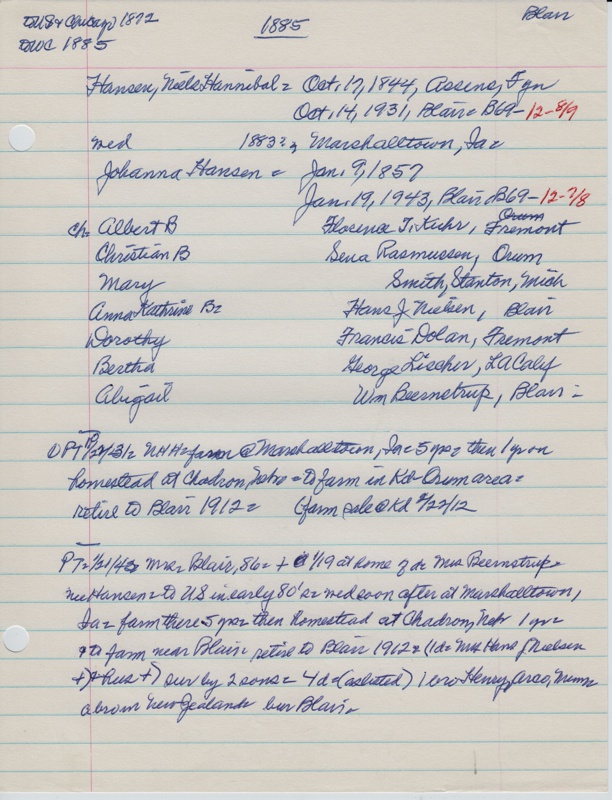 DUS & Chicago 1872
DWC 1885
1885
Blair
Hansen, Niels Hannibal = Oct. 17, 1844, Assens, Fyn
Oct. 14, 1931, Blair = B69-12-8/9
wed 1883?, Marshalltown, Ia=
Johanna Hansen = Jan. 9, 1857
Jan. 19, 1943, Blair B69-12-7/8
ch= Albert B Florence T. Kuhr, Orum Fremont
Christian B Sena Rasmussen, Orum
Mary Smith, Stanton, Mich
Anna Kathrine B= Hans J. Nielsen, Blair
Dorothy Francis Dolan, Fremont
Bertha George Lischer, LA Calif
Abigail Wm Beernstrup, Blair =
NHH= farm @ Marshalltown, Ia= 5 yrs= then 1 yr on
homestead at Chadron, Nebr = to farm in Kd-Orum area=
retire to Blair 1912= (farm sale @ Kd 2/22/12
Mrs= Blair, 86= + @ 1/19 at home of d= Mrs Beernstrup=
nee Hansen= to US in early 80's= wed soon after at Marshalltown,
Ia= farm there 5 yrs= then homestead at Chadron, Nebr 1 yr=
+ to farm near Blair= retire to Blair 1912= (1d= Mrs Hans J Nielsen
+) + hus +) sur by 2 sons= 4d= (as listed) 1 bro Henry,
a bro in New Zealand= bur Blair=